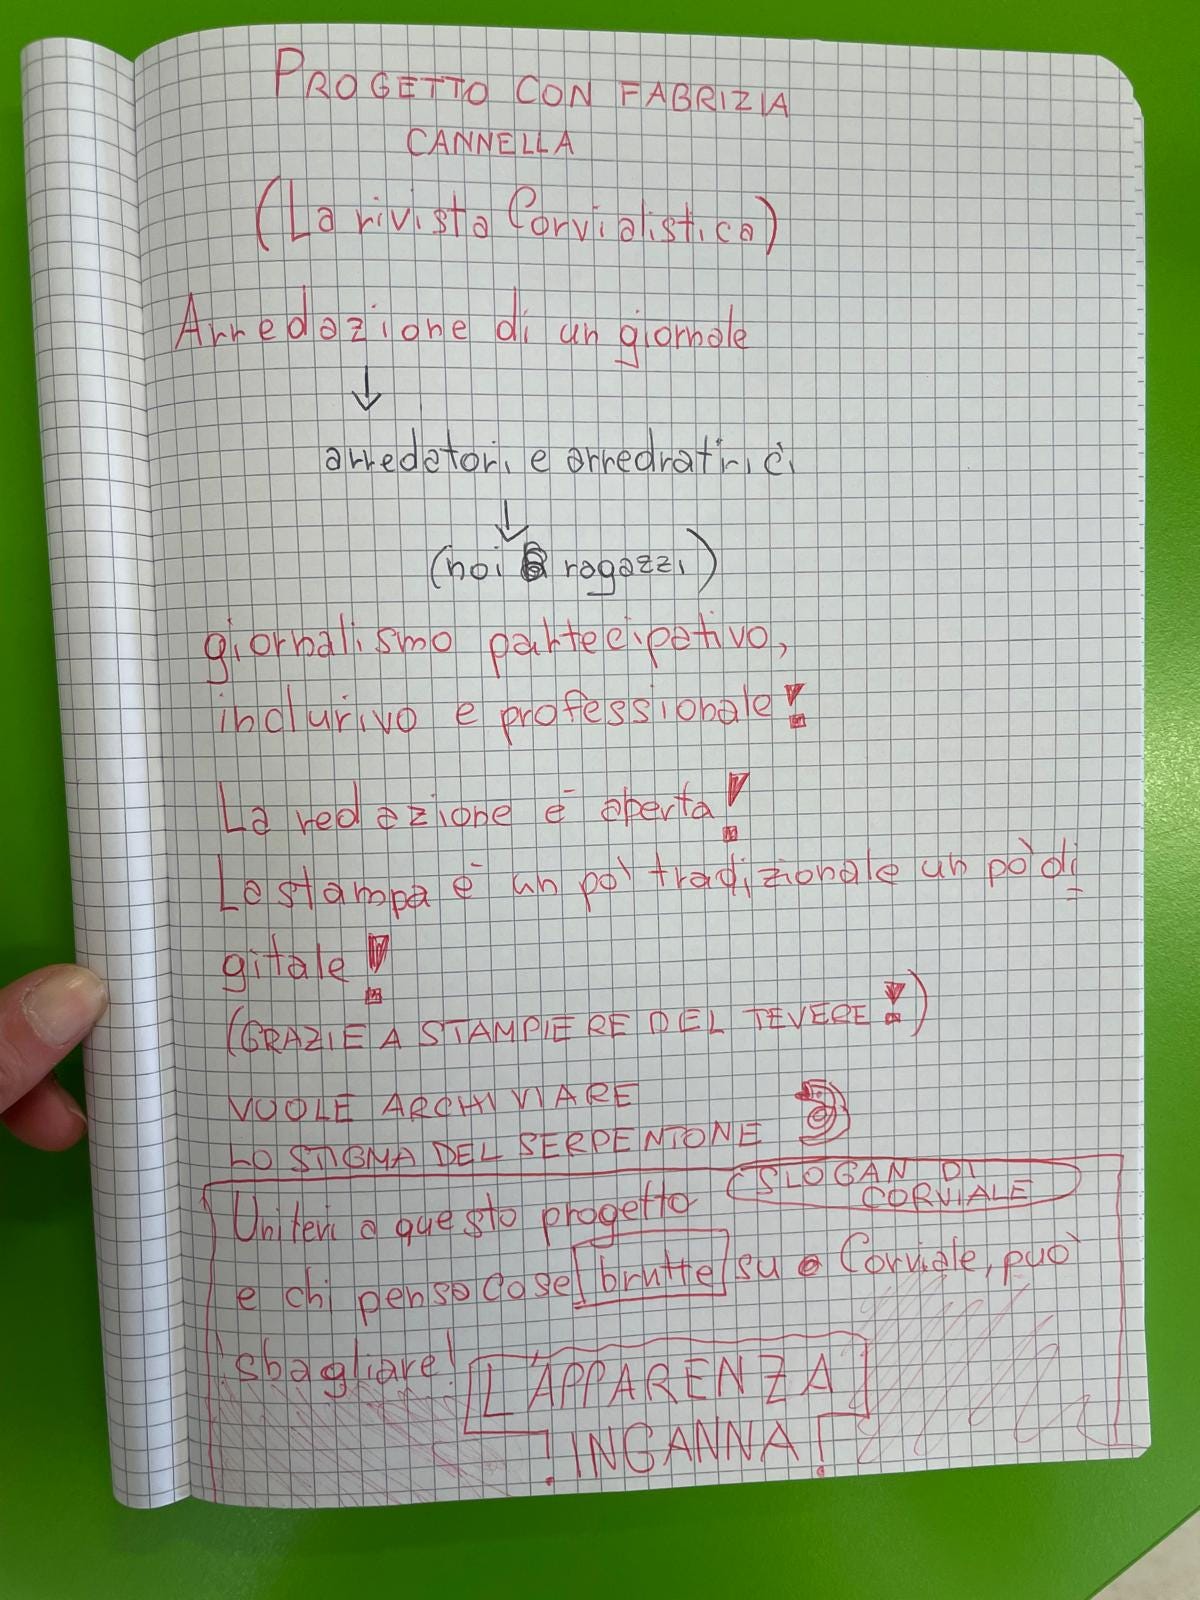 PROGETTO CON FABRIZIA
CANNELLA
(La rivista Corvialistica)
Arredazione di un giornale
↓
arredatori e arredratrici
↓
(noi ragazzi)
giornalismo partecipativo,
inclurivo e professionale!
La redazione è aperta!
La stampa è un po' tradizionale un po' di
gitale!
(GRAZIE A STAMPIERE DEL TEVERE!)
VUOLE ARCHIVIARE
LO STIGMA DEL SERPENTONE
SLOGAN DI
CORVIALE
Unitevi a questo progetto
e chi pensa cose brutte su Corviale, può
sbagliare!
L'APPARENZA
INGANNA!